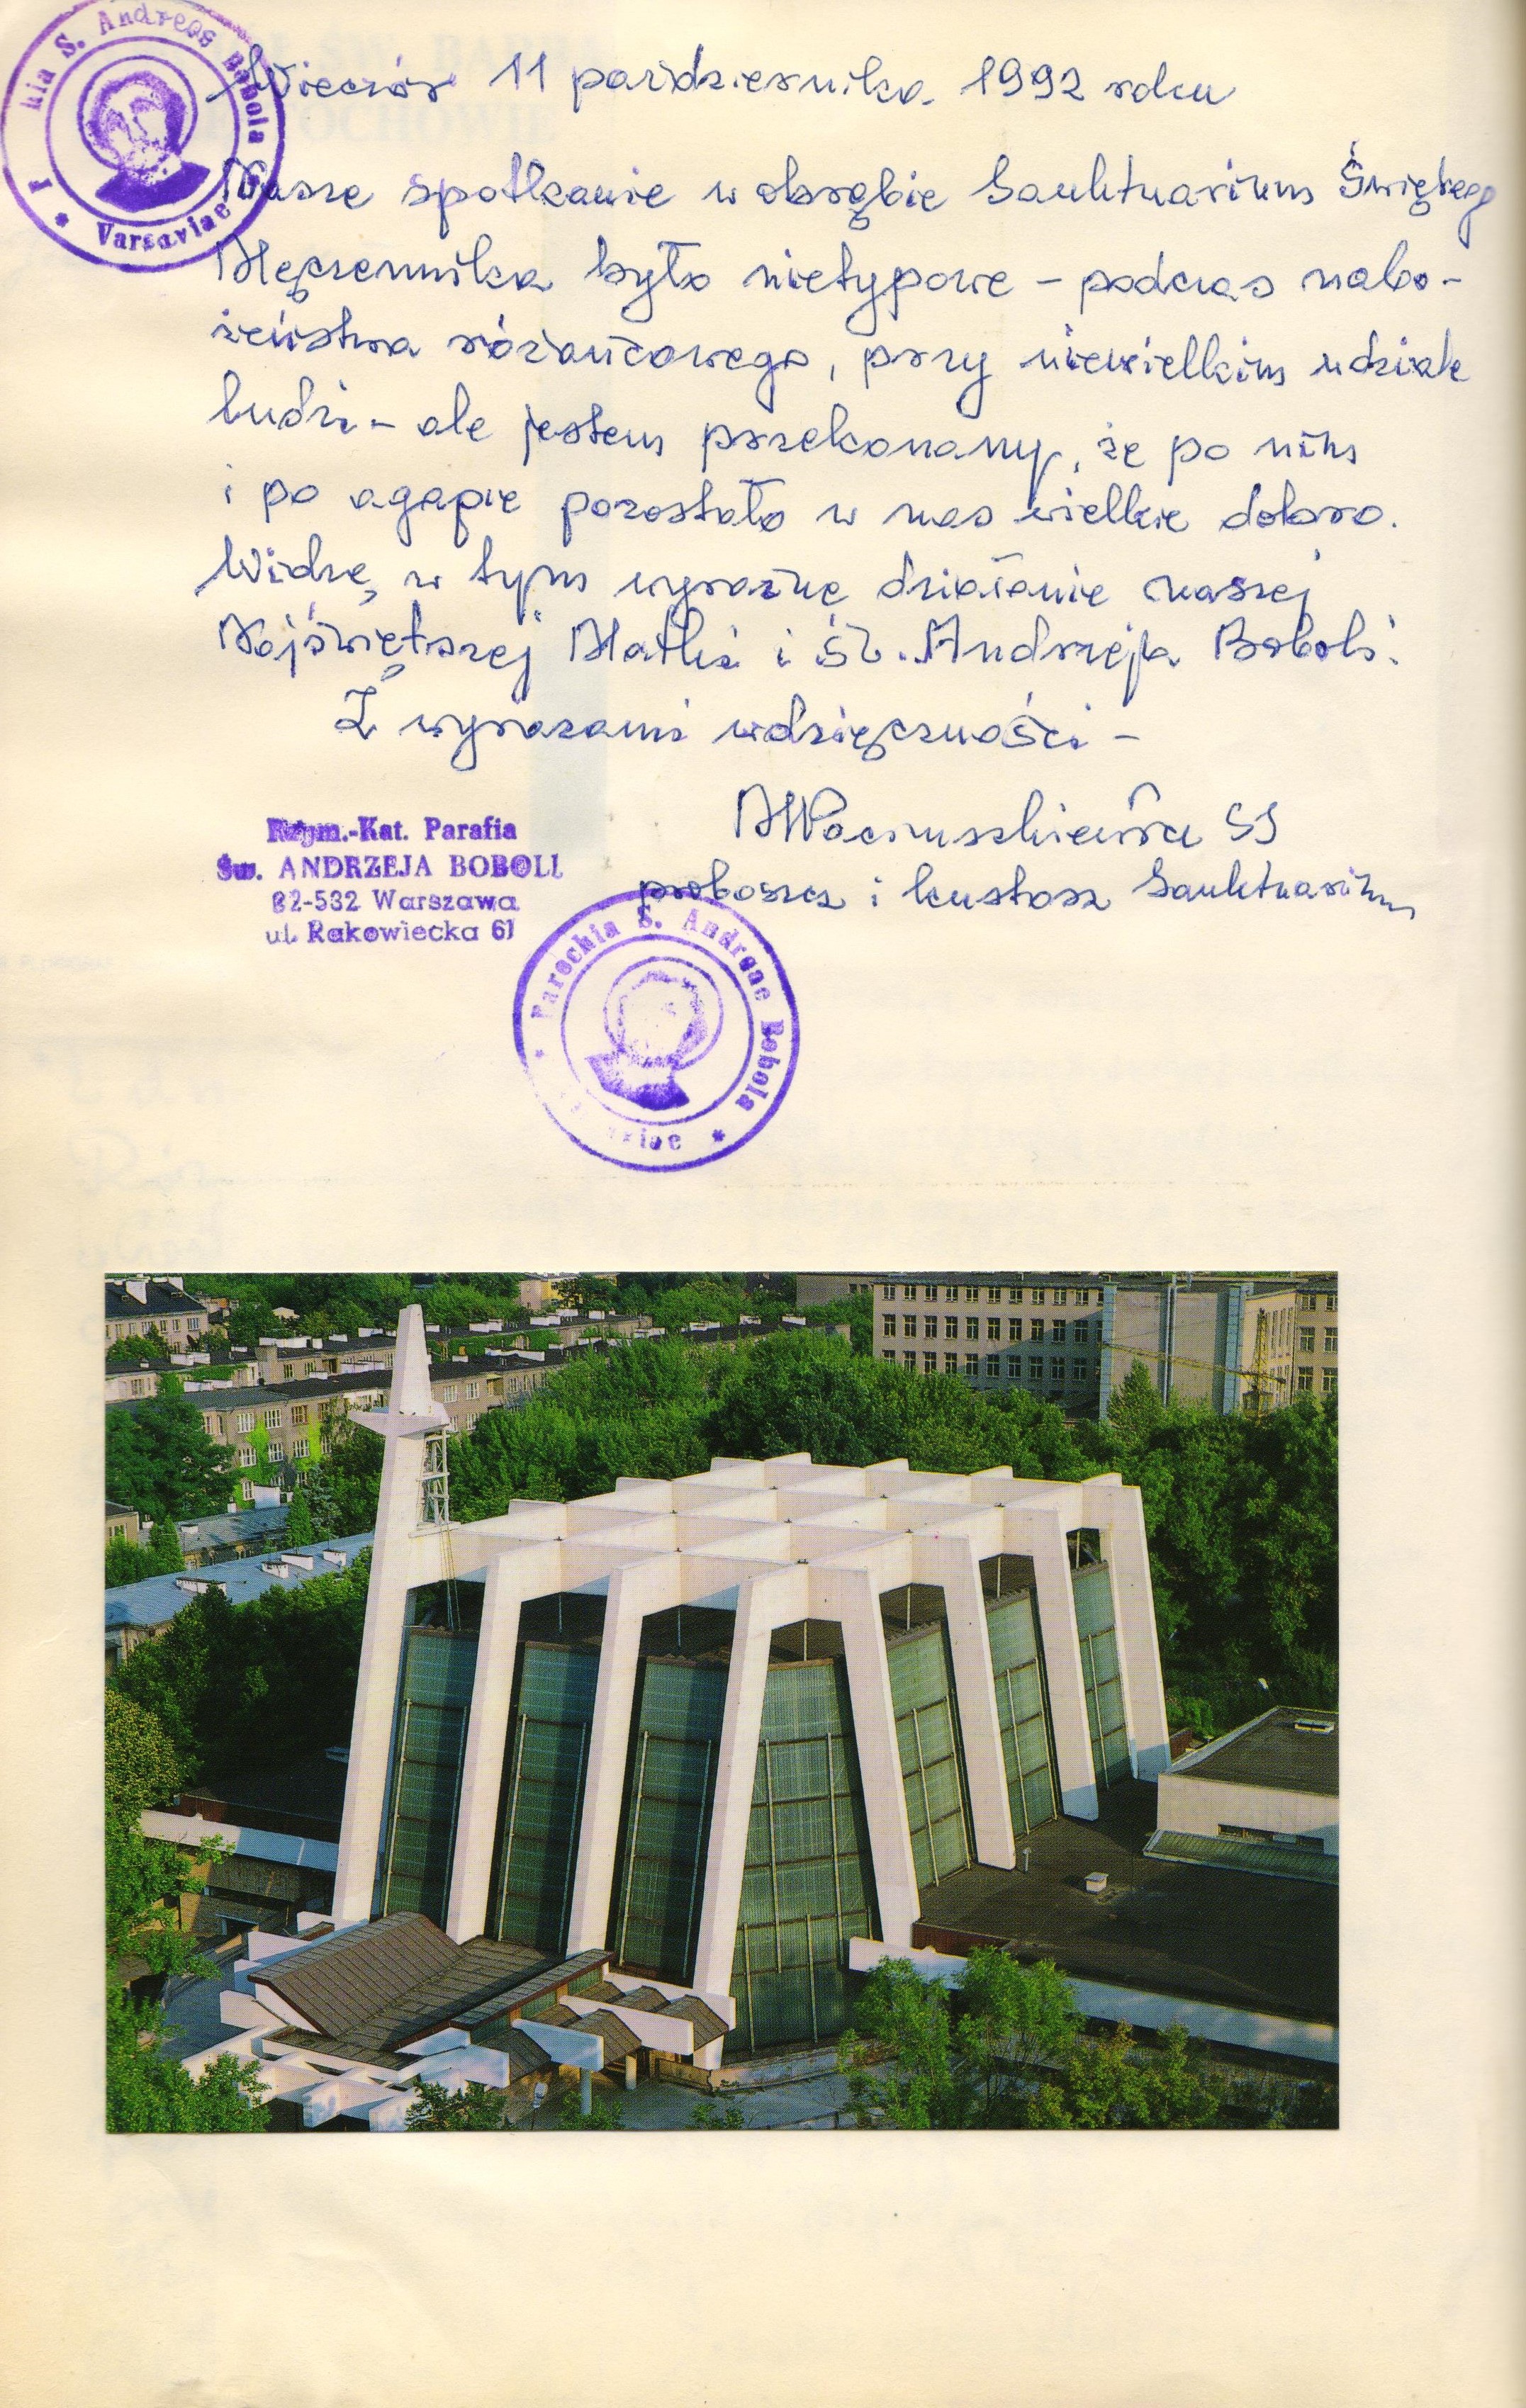 nia S. Andreas Bobola
Varsaviae
Wieczór 11 października 1992 roku
Nasze spotkanie w obrębie Sanktuarium Świętego
Męczennika było nietypowe – podczas nabo-
żeństwa różańcowego, przy niewielkim udziale
ludzi – ale jestem przekonany, że po nim
i po agapie pozostało w nas wielkie dobro.
Widzę w tym wyraźne działanie naszej
Najświętszej Matki i św. Andrzeja Boboli.
Z wyrazami wdzięczności –
SJ
proboszcz i kustosz Sanktuarium
Rzym.-Kat. Parafia
Św. ANDRZEJA BOBOLI
02-532 Warszawa
ul. Rakowiecka 61
Parochia S. Andreae Bobola